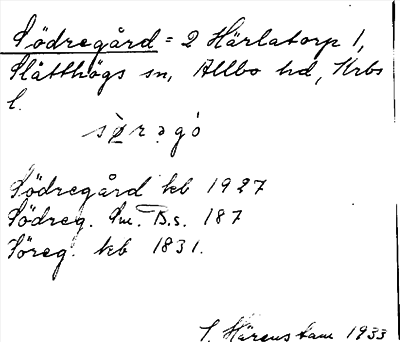 Södregård = 2 Härlatorp 1,
Slätthögs sn, Allbo hd, Krbs
l.
sø̀rəgó
Södregård kb 1927
Södreg. Sm. B.s. 187
Söreg. kb 1831.
S. Härenstam 1933